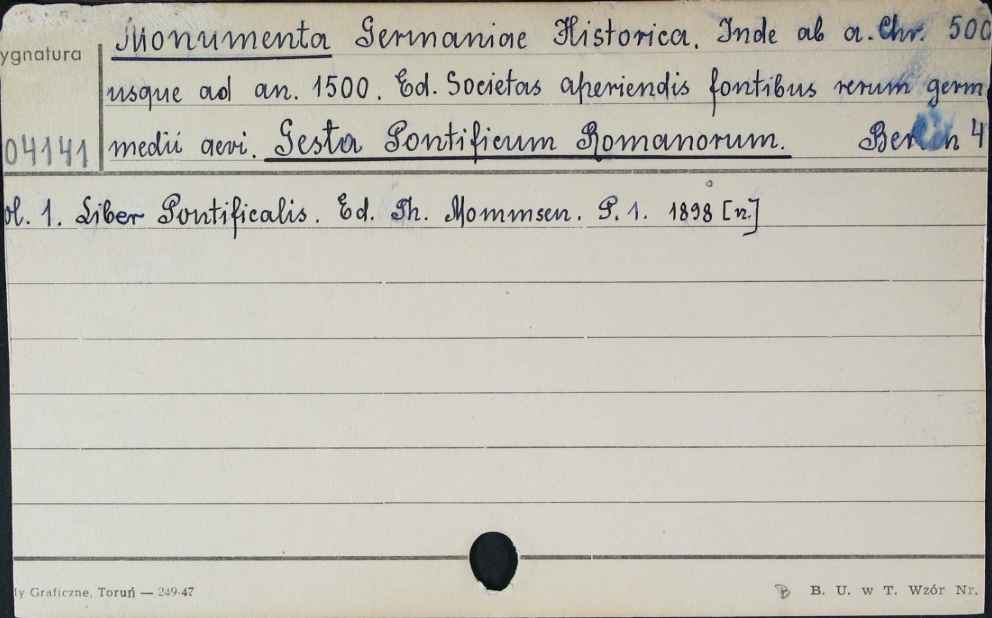 ygnatura
04141
Monumenta Germaniae Historica. Inde ab a. Chr. 500
usque ad an. 1500. Ed. Societas aperiendis fontibus rerum germ
medii aevi. Gesta Pontificum Romanorum. Berlin 4°
ol. 1. Liber Pontificalis. Ed. Th. Mommsen. P. 1. 1898 [n.]
dy Graficzne, Toruń — 249-47
B. U. w T. Wzór Nr.